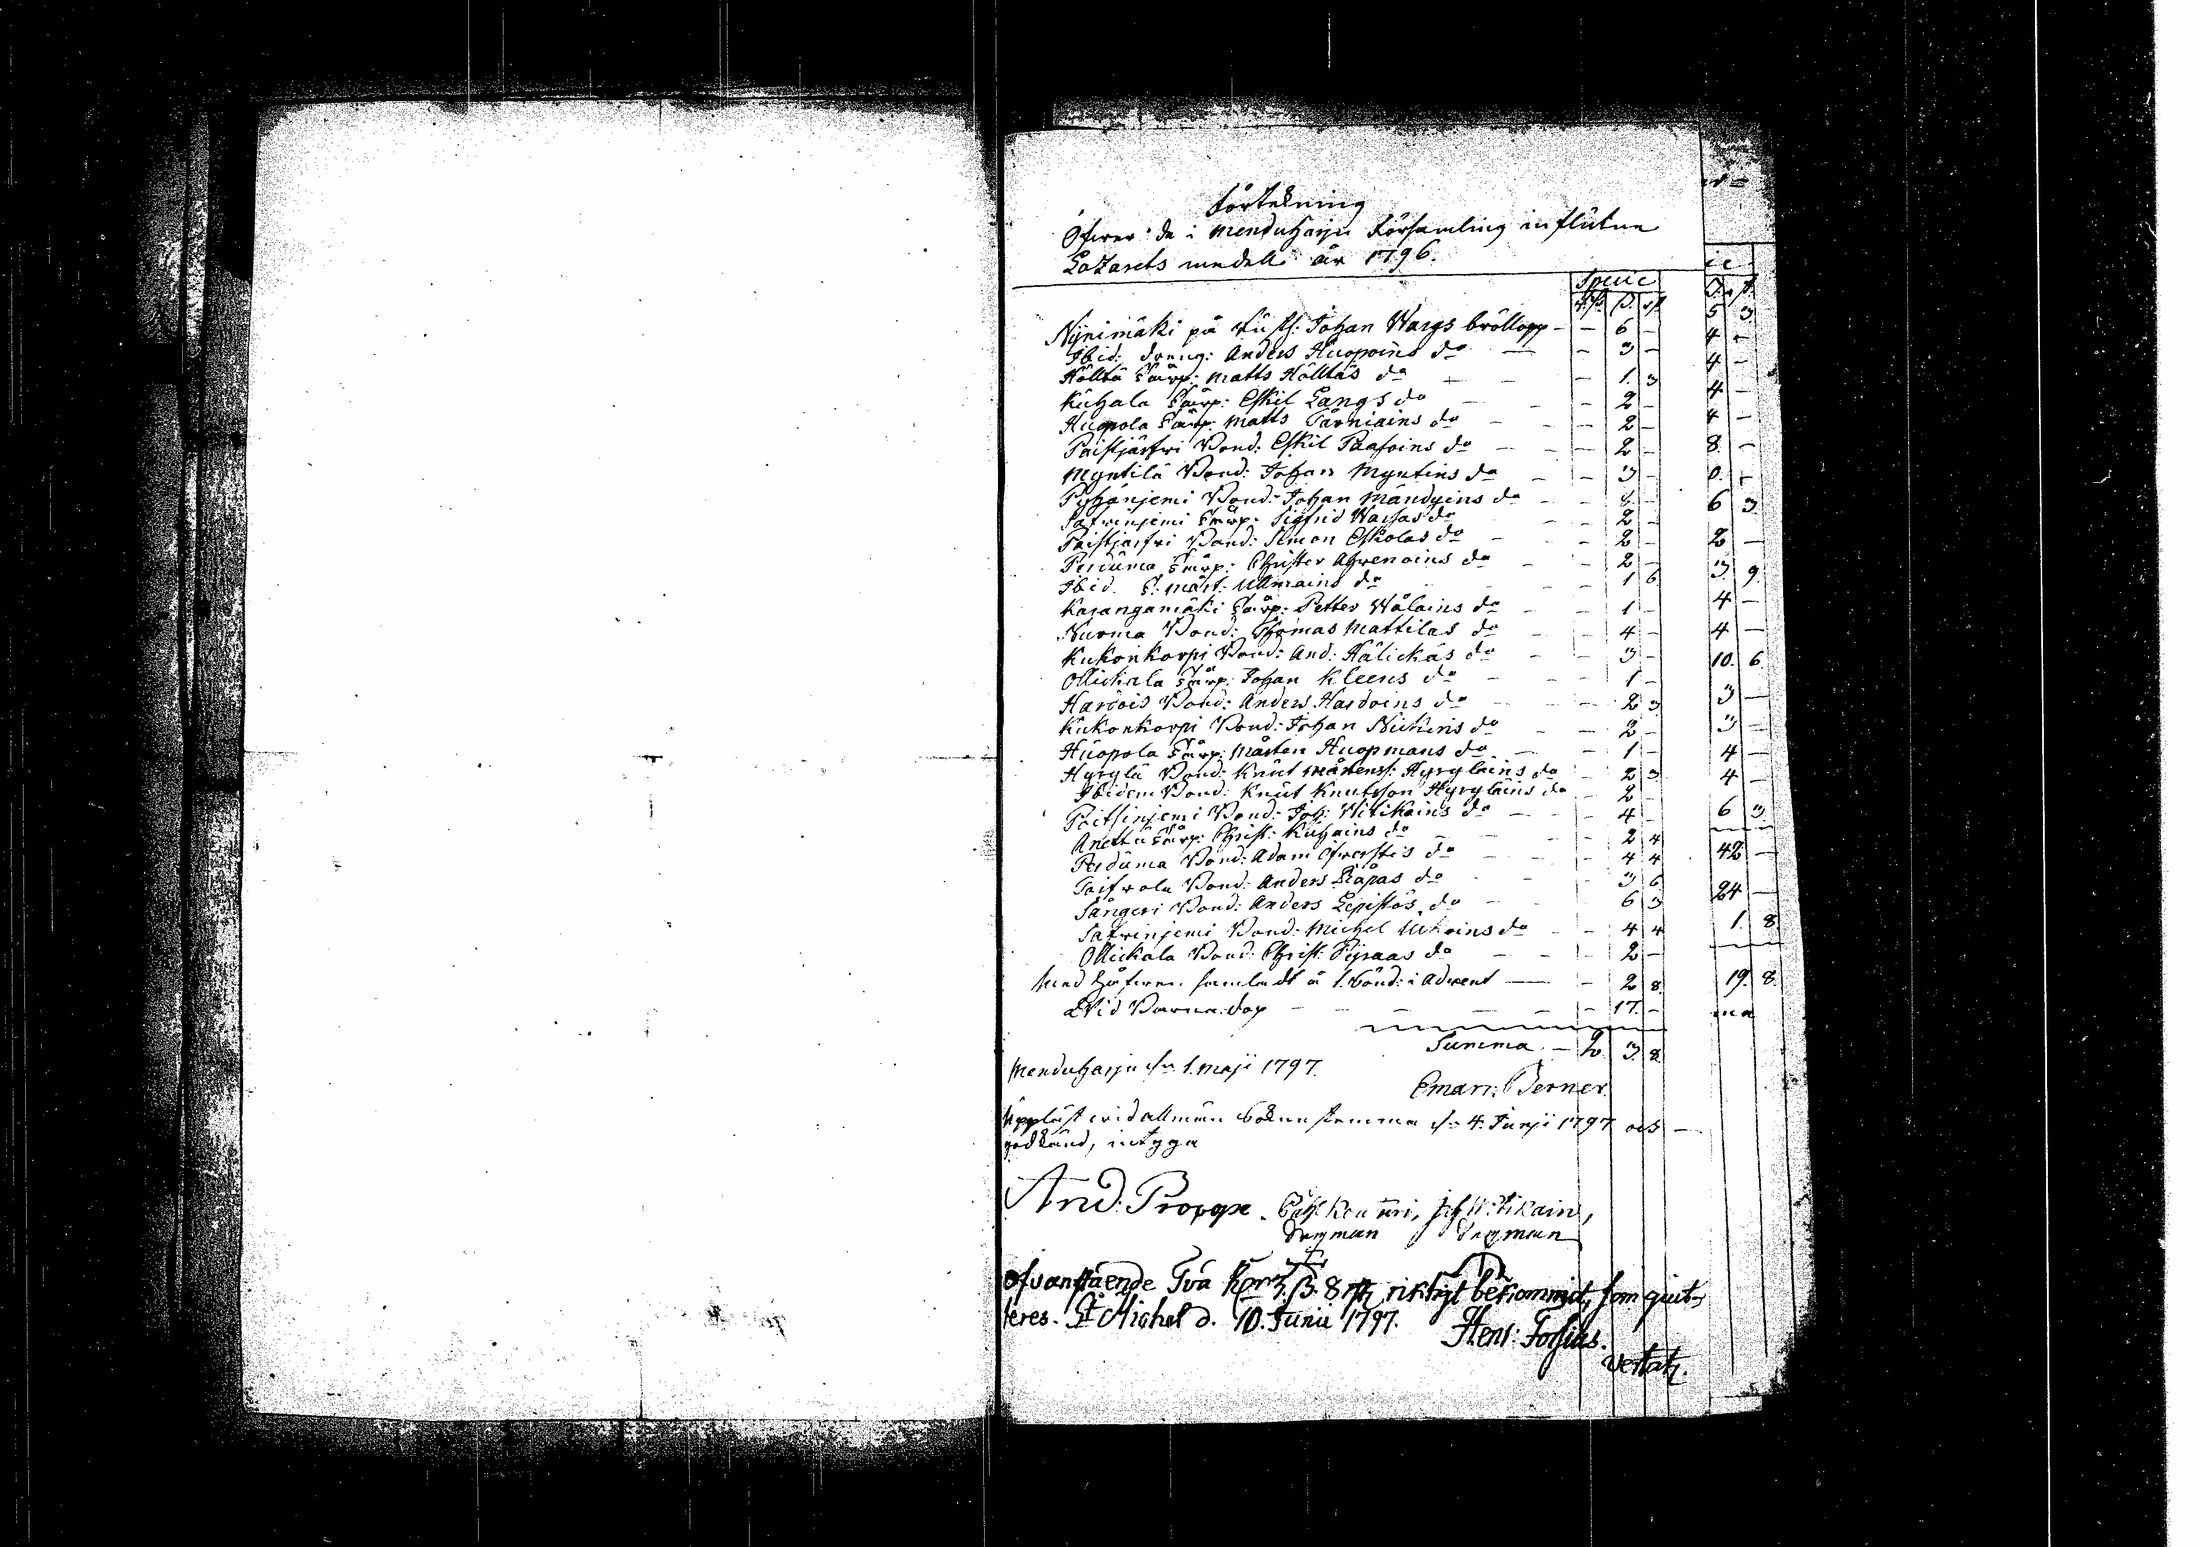 Förtekning
Öfwer de i Menduharju Församling influtne
Lazarets medell år 1796.
Specie
Rdr ß. rst.
Nynimäki på Kusk: Johan Wargs bröllopp — – 6 –
Ibid: dreng: Anders Huopoins do — – 3 –
Hölltä Torp: Matts Hölltäs do – 1. 3
Kuhala Torp: Eskil Langs do – 2 –
Huopola Torp: Matts Tarniains do – 2 –
Paistjärfwi Bond: Eskil Paasoins do – 2 –
Myntilä Bond: Johan Myntins do – 3 –
Pyhänjemi Bond: Johan Mändyins do
Satwinjemi Torp: Sigfrid Warsas do – 2 –
Paistjerfwi Bond: Simon Eskolas do – 2 –
Perduma Torp: Christer Ahwenains do – 2 –
Ibid. do – 1 6
Kasangamäki Torp: Petter Wälains do – 1 –
Nurma Bond: Thomas Mattilas do – 4 –
Kukonkorpi Bond: And: Hälickäs do – 3 –
Ollickala Torp: Johan Kleens do – 1 –
Hardois Bond: Anders Hardoins do – 2 3
Kukonkorpi Bond: Johan Nickins do – 2 –
Huopola Torp: Mårten Huopmans do – 1 –
Hyrylä Bond: Knut Mårtenss: Hyryläins do – 2 3
Ibidem Bond: Knut Knutsson Hyryläins do – 2 –
Paitsinjemi Bond: Joh: Witikains do – 4 –
Anetta Torp: Christ: Kuhains do – 2 4
Perduma Bond: Adam Öfwerstis do – 4 4
Toifwola Bond: Anders Räpas do – 3 6
Sångeri Bond: Anders Lepistös do – 6 3
Satwinjemi Bond: Michel Ukoins do – 4 4
Ollickala Bond: Christ: Pijraas do – 2 –
Med Håfwen samladt å 1. Sönd: i Advent — – 2 8.
Wid Barna-dop – 17. –
Summa – 2. 3 8.
Menduharju d. 1. Maji 1797.
Eman: Berner.
Uppläst wid allmän Sokne stemma d. 4. Junji 1797 och
godkänd, intyga
And: Proppe. Påhl Kaunari, Joh: Witikain,
Sexman Sexman
Ofvanstående Två Rdr 3. ß. 8 rst. riktigt bekommit, som quit-
teres. St Michel d. 10. Junii 1797.
Hens: Forsius.
vertatz.
5 3
4 –
4 –
4 –
4 –
8. –
0. –
6 3.
2 –
3. 9.
4 –
4 –
10. 6.
3 –
3 –
4 –
4 –
6 3.
42 –
24 –
1. 8
19. 8.